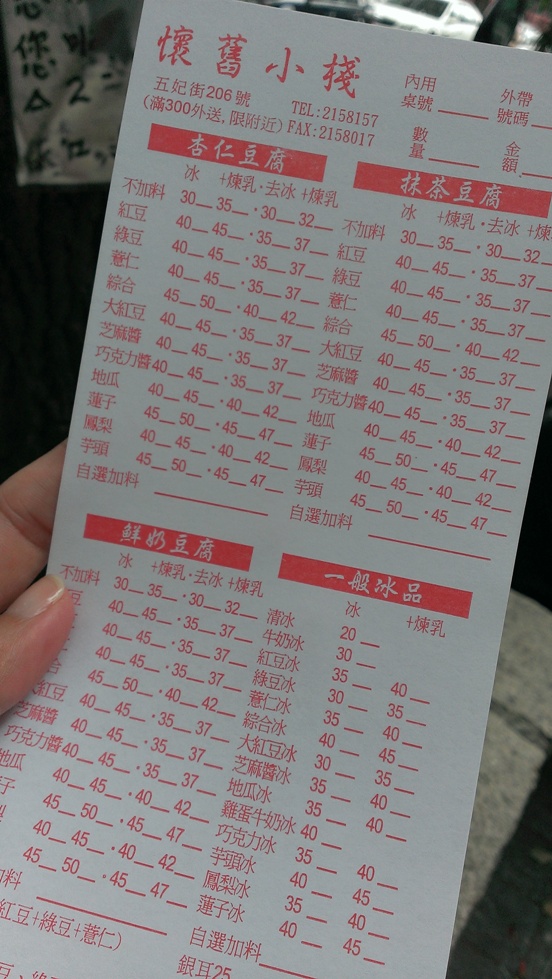 您
懷舊小棧
五妃街206號
(滿300外送,限附近)
TEL:2158157
FAX:2158017
內用桌號___ 外帶號碼___
數量___ 金額___
杏仁豆腐
冰 +煉乳·去冰 +煉乳
不加料 30__35__·30__32__
紅豆 40__45__·35__37__
綠豆 40__45__·35__37__
薏仁 40__45__·35__37__
綜合 45__50__·40__42__
大紅豆 40__45__·35__37__
芝麻醬 40__45__·35__37__
巧克力醬 40__45__·35__37__
地瓜 40__45__·40__42__
蓮子 45__50__·45__47__
鳳梨 40__45__·40__42__
芋頭 45__50__·45__47__
自選加料________
抹茶豆腐
冰 +煉乳·去冰 +煉
不加料 30__35__·30__32__
紅豆 40__45__·35__37__
綠豆 40__45__·35__37__
薏仁 40__45__·35__37__
綜合 45__50__·40__42__
大紅豆 40__45__·35__37__
芝麻醬 40__45__·35__37__
巧克力醬 40__45__·35__37__
地瓜 40__45__·40__42__
蓮子 45__50__·45__47__
鳳梨 40__45__·40__42__
芋頭 45__50__·45__47__
自選加料________
鮮奶豆腐
冰 +煉乳·去冰 +煉乳
不加料 30__35__·30__32__
豆 40__45__·35__37__
40__45__·35__37__
40__45__·35__37__
合 45__50__·40__42__
紅豆 40__45__·35__37__
芝麻醬 40__45__·35__37__
巧克力醬 40__45__·35__37__
地瓜 40__45__·40__42__
子 45__50__·45__47__
40__45__·40__42__
45__50__·45__47__
料________
紅豆+綠豆+薏仁)
一般冰品
冰 +煉乳
清冰 20__
牛奶冰 30__
紅豆冰 35__ 40__
綠豆冰 30__ 35__
薏仁冰 35__ 40__
綜合冰 40__ 45__
大紅豆冰 30__ 35__
芝麻醬冰 35__ 40__
地瓜冰 35__ 40__
雞蛋牛奶冰 40__
巧克力冰 35__ 40__
芋頭冰 40__ 45__
鳳梨冰 35__ 40__
蓮子冰 40__ 45__
自選加料________
銀耳25